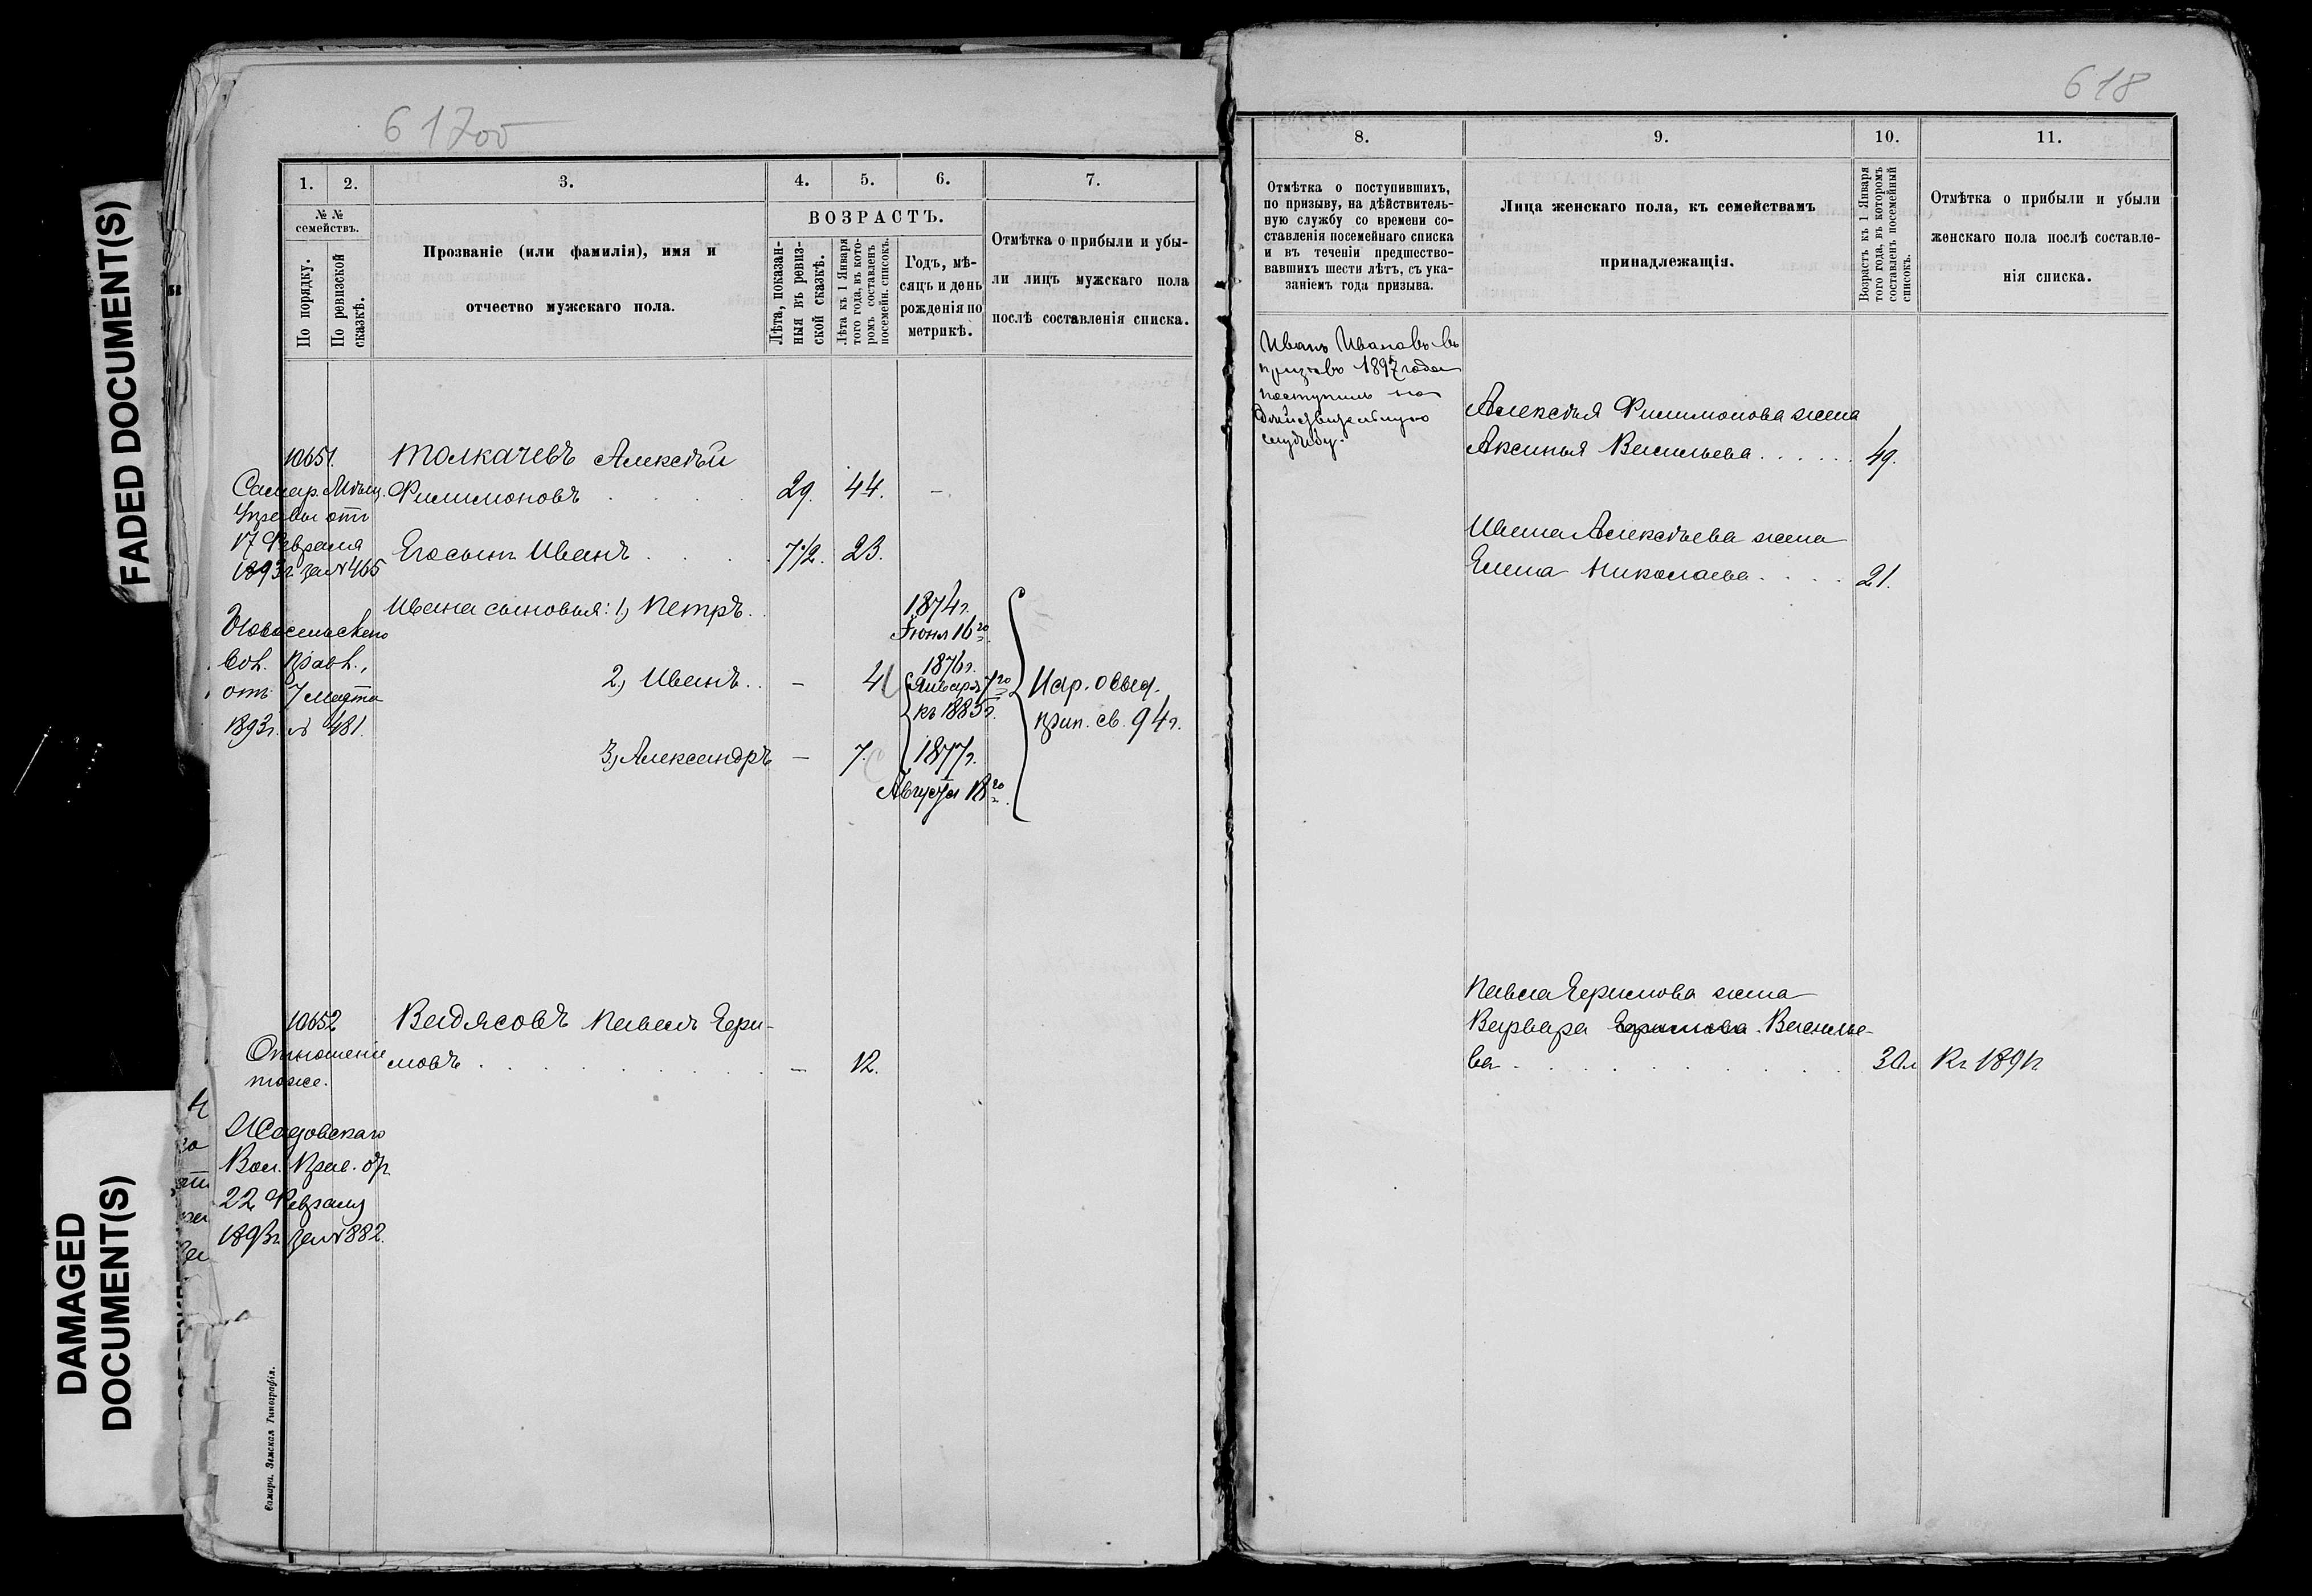 FADED DOCUMENT(S)
DAMAGED
DOCUMENT(S)
617об
1. 2. 3. 4. 5. 6. 7.
№ №
семействъ.
По порядку.
По ревизской
сказкѣ.
Прозваніе (или фамилія), имя и
отчество мужскаго пола.
ВОЗРАСТЪ.
Лѣта, показан-
ныя въ ревиз-
ской сказкѣ.
Лѣта къ 1 Января
того года, въ кото-
ромъ составленъ
посемейн. списокъ.
Годъ, мѣ-
сяцъ и день
рожденія по
метрикѣ.
Отмѣтка о прибыли и убы-
ли лицъ мужскаго пола
послѣ составленія списка.
10651. Толкачевъ Алексѣй
Самар. Мѣщ. Филимоновъ 29. 44. –
Управы отъ
17 Февраля
1893г. за № 465
Его сынъ Иванъ 7 1/2. 23.
Ивана сыновья: 1, Петръ. 1874г.
Іюня 16го
Новосельскаго
Вол. Прав.,
отъ 7 Марта
1893г. № 481.
2, Иванъ.. – 1876г.
Января 7го
къ 1885г.
прип. св. 94г.
3, Александръ – 7. 1877г.
Августа 18го
10652 Видясовъ Павелъ Ери-
мовъ – 12.
Отношеніе
тоже.
Вол. Прав. от
22 Февраля
1893г. за № 882.
Самара. Земская Типографія.
618
8. 9. 10. 11.
Отмѣтка о поступившихъ,
по призыву, на дѣйствитель-
ную службу со времени со-
ставленія посемейнаго списка
и въ теченіи предшество-
вавшихъ шести лѣтъ, съ ука-
заніемъ года призыва.
Лица женскаго пола, къ семействамъ
принадлежащія.
Возрастъ къ 1 Января
того года, въ которомъ
составленъ посемейный
списокъ.
Отмѣтка о прибыли и убыли
женскаго пола послѣ составле-
нія списка.
Иванъ Ивановъ въ
призывъ 1897 года
поступилъ на
дѣйствительную
службу.
Алексѣя Филимонова жена
Аксинья Васильева 49.
Ивана Алексѣева жена
Елена Николаева 21.
Павла Еримова жена
Варвара Еримова Василье-
ва 30л Къ 1891г